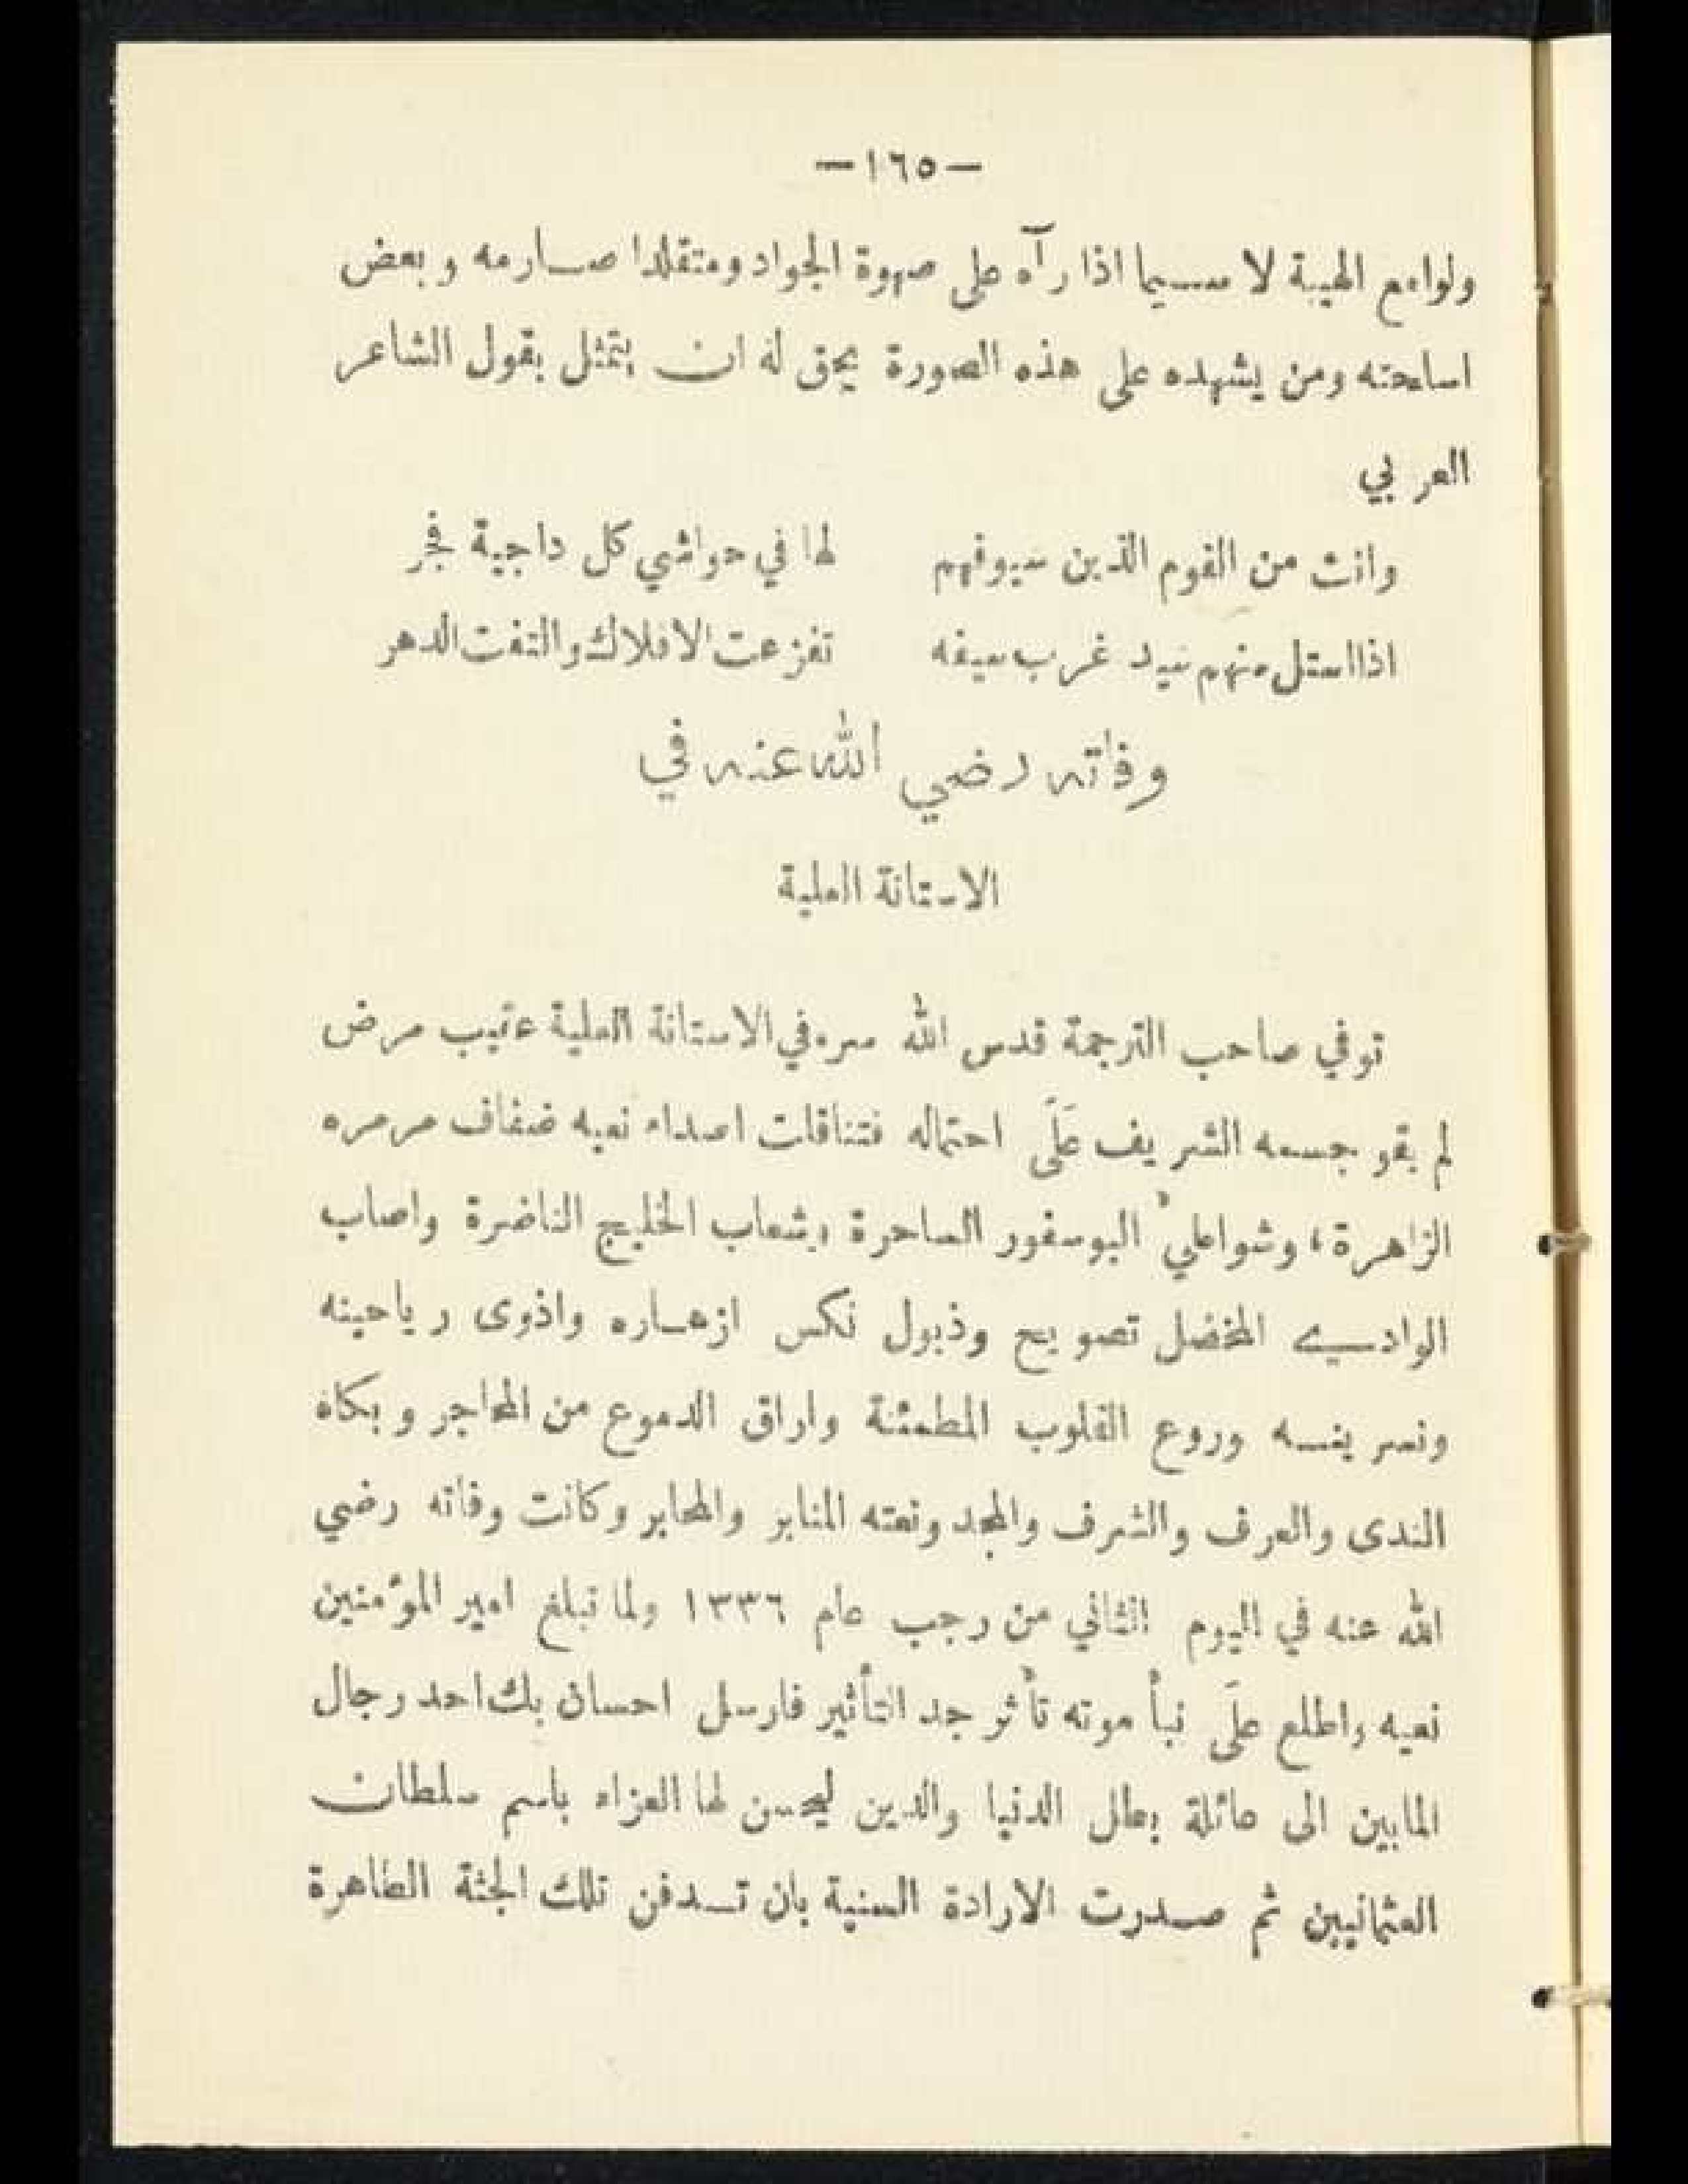 — ١٦٥ —
ولوامع الهيبة لا سيما اذا رآه على صهوة الجواد ومتقلدا صارمه وبعض
اسلحته ومن يشهده على هذه الصورة يحق له ان يتمثل بقول الشاعر
العربي
وانت من القوم الذين سيوفهم لها في حواشي كل داجية فجر
اذا استل منهم سيد غرب سيفه تفزعت الافلاك والتفت الدهر
وفاته رضي الله عنه في
الاستانة العلية
توفي صاحب الترجمة قدس الله سره في الاستانة العلية عقيب مرض
لم يقو جسمه الشريف على احتماله فتناقلت اصداء نعيه ضفاف مرمره
الزاهرة، وشواطيء البوسفور الساحرة وشعاب الخليج الناضرة واصاب
الوادي المخضل تصويح وذبول نكس ازهاره واذوى رياحينه
ونسرينه وروع القلوب المطمئنة واراق الدموع من المحاجر وبكاه
الندى والعرف والشرف والمجد ونعته المنابر والمحابر وكانت وفاته رضي
الله عنه في اليوم الثاني من رجب عام ١٣٣٦ ولما تبلغ امير المؤمنين
نعيه واطلع على نبأ موته تأثر جد التأثير فارسل احسان بك احد رجال
المابين الى عائلة بطل الدنيا والدين ليحسن لها العزاء باسم سلطان
العثمانيين ثم صدرت الارادة السنية بان تدفن تلك الجثة الطاهرة